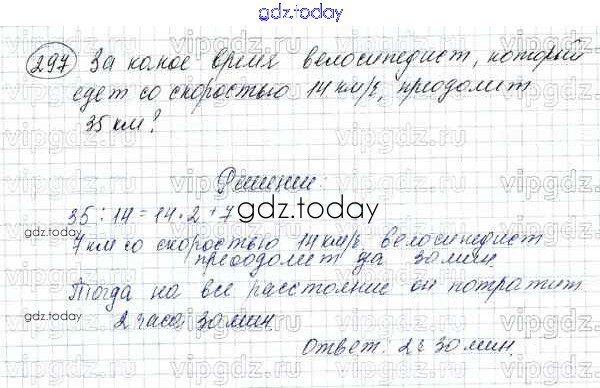 gdz.today
297 За какое время велосипедист, который
едет со скоростью 14 км/ч, преодолит
35 км?
Решение:
35 : 14 = 14 · 2 + 7
gdz.today
7 км со скоростью 14 км/ч велосипедист
преодолит за 30 мин.
Тогда на все расстояние он потратит
gdz.today
2 часа 30 мин.
Ответ. 2 ч 30 мин.